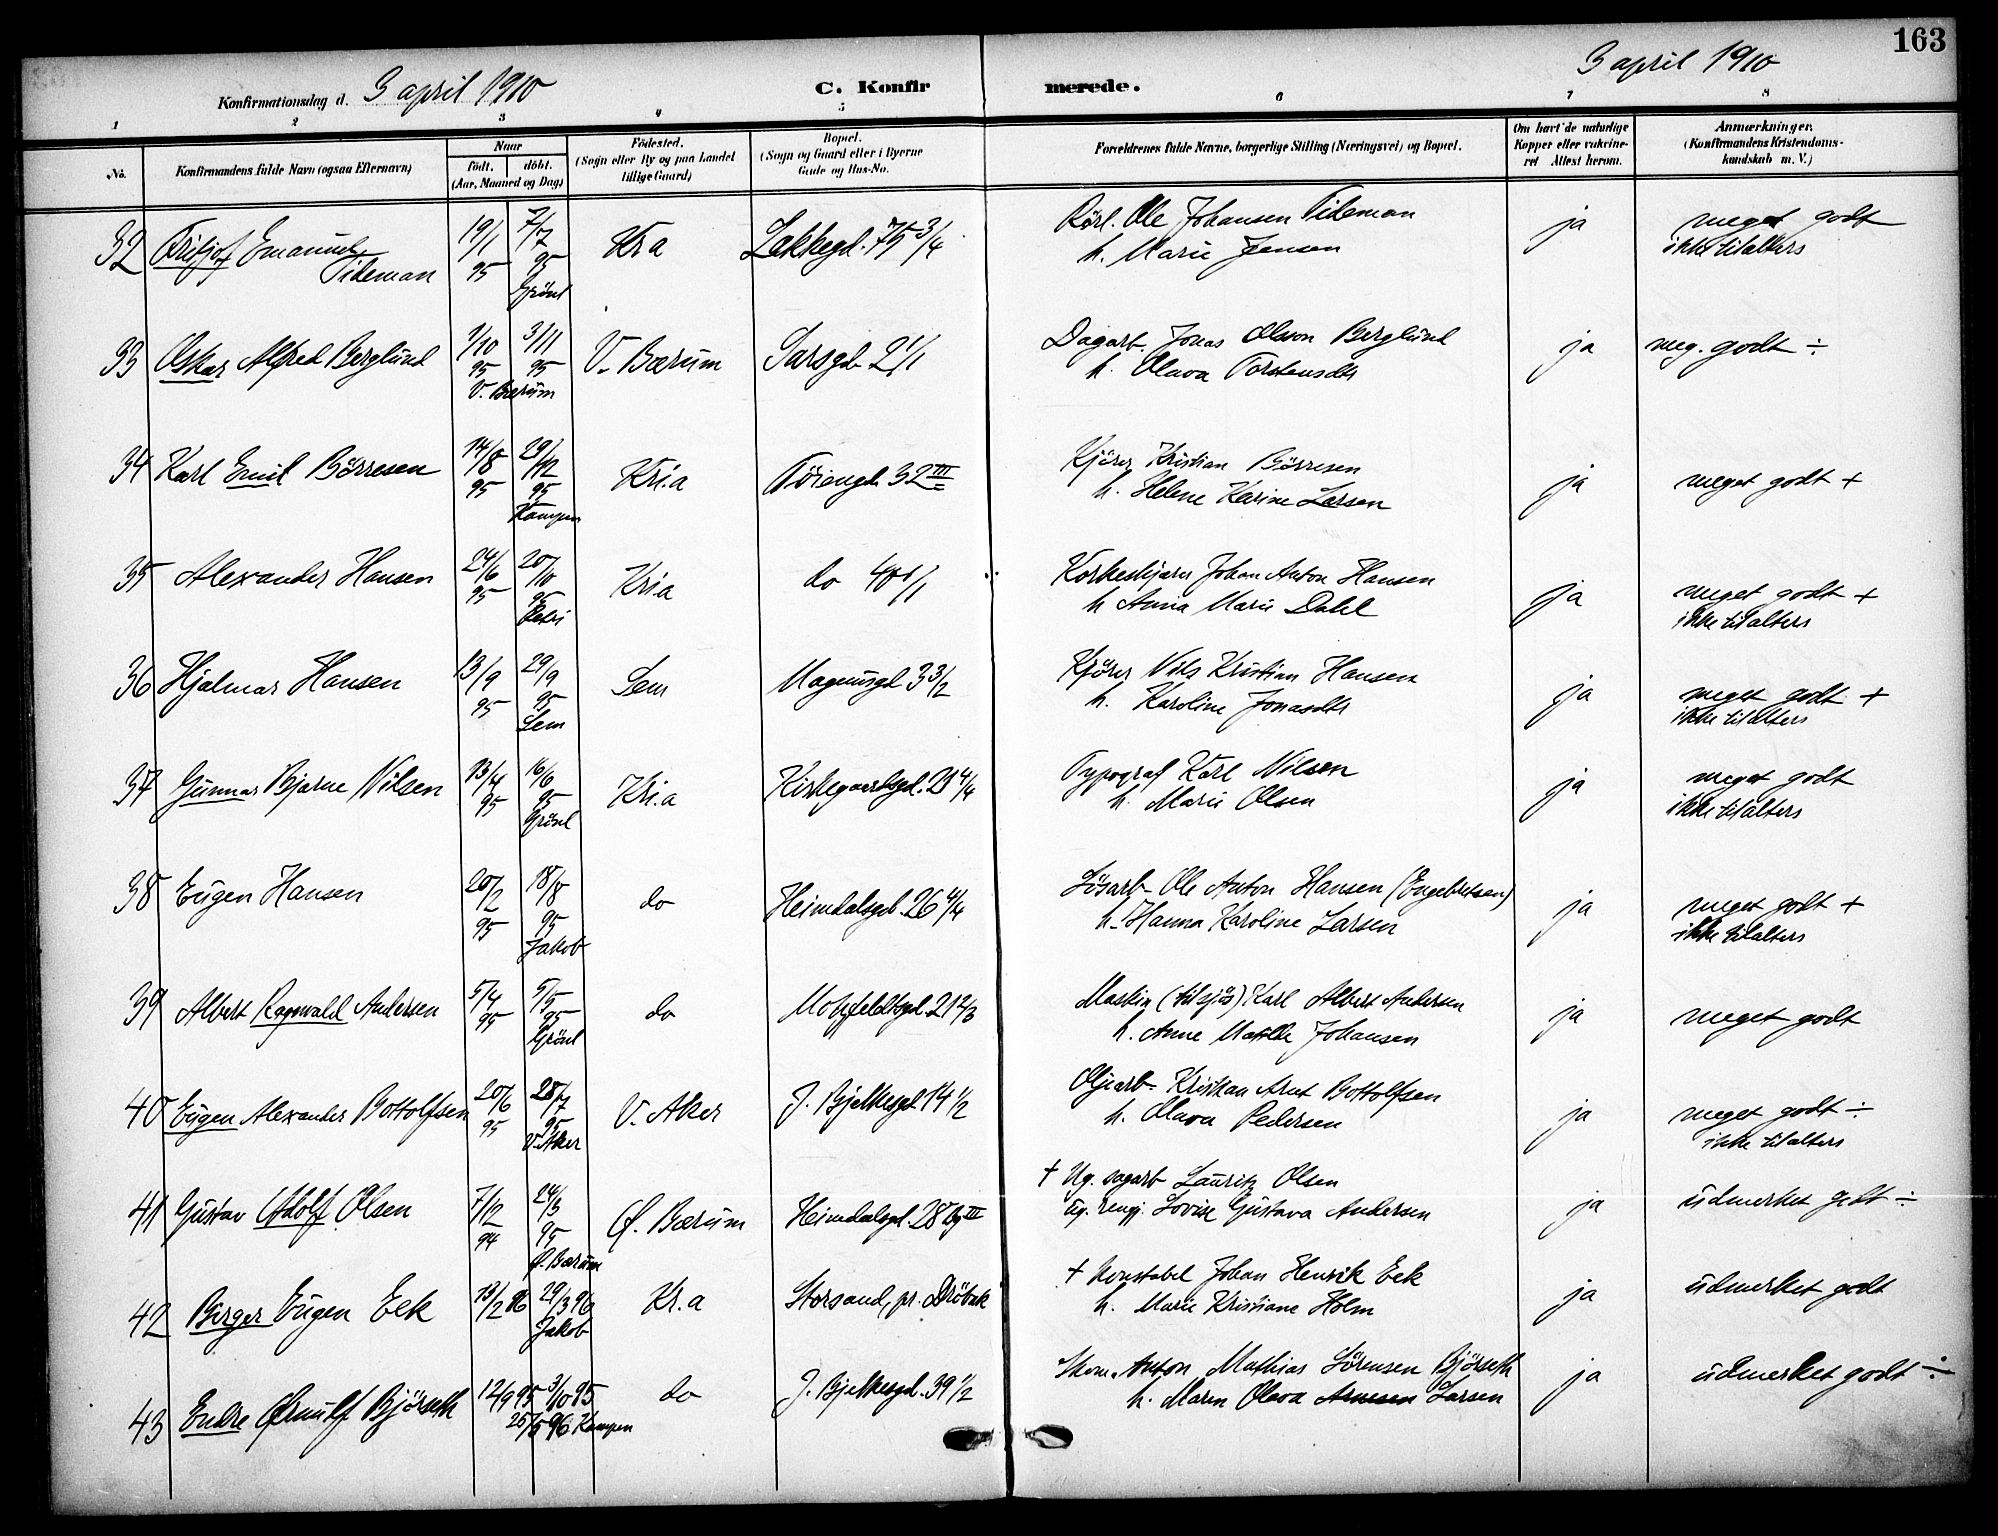 163
3 april 1910
Konfirmationsdag d. 3 april 1910
C. Konfirmerede.
1 2 3 4 5 6 7 8
No.
Konfirmandens fulde Navn (ogsaa Efternavn)
Naar
födt. döbt.
(Aar, Maaned og Dag)
Födested.
(Sogn eller By og paa Landet
tillige Gaard)
Bopæl.
(Sogn og Gaard eller i Byerne
Gade og Hus-No.
Forældrenes fulde Navne, borgerlige Stilling (Næringsvei) og Bopæl.
Om havt de naturlige
Kopper eller vakcine-
ret Attest herom.
Anmærkninger.
(Konfirmandens Kristendoms-
kundskab m. V.)
32 Fritjof Emanuel Tideman 19/1 95 7/7 95 Grönl Kra Lakkegd. 75 3/4 Rörl. Ole Johansen Tideman ja meget godt
h. Marie Jensen ikke tilalters
33 Oskar Alfred Berglund 1/10 95 3/11 95 V. Bærum V. Bærum Sarsgd 2 1/1 Dagarb. Jonas Olsson Berglund ja meg. godt ÷
h. Olava Torstensdtr
34 Karl Emil Börresen 14/8 95 29/12 95 Kampen Kri.a Töiengd. 32 III Kjörer Kristian Börresen ja meget godt +
h. Helene Karine Larsen
35 Alexander Hansen 24/6 95 20/10 95 Petri Kri.a do 40 1/1 Korkeskjærer Johan Anton Hansen ja meget godt +
h Anna Marie Dahl ikke tilalters
36 Hjalmar Hansen 13/9 95 29/9 95 Sem Sem Magnusgd 3 3/2 Kjörer Nils Kristian Hansen ja meget godt +
h. Karoline Jonasdtr ikke tilalters
37 Gunnar Bjarne Nilsen 13/4 95 16/6 95 Grönl Kri.a Kirkegaardsgd. 21 4/4 Typograf Karl Nilsen ja meget godt
h. Marie Olsen ikke tilalters
38 Eugen Hansen 20/2 95 18/8 95 Jakob do Heimdalsgd. 26 4/4 Lösarb. Ole Anton Hansen (Engebretsen) ja meget godt +
h. Hanna Karoline Larsen ikke tilalters
39 Albert Ragnvald Andersen 5/4 95 5/5 95 Grönl do Motzfeldtsgd. 21 2/3 Maskin (tilsjøs) Karl Albert Andersen ja meget godt
h. Anne Matilde Johansen
40 Eugen Alexander Bottolfsen 20/6 95 28/7 95 V. Aker V. Aker J. Bjelkesgd 14 1/2 Oljearb. Kristian Arnt Bottolfsen ja meget godt ÷
h. Olava Pedersen ikke tilalters
41 Gustav Adolf Olsen 7/12 94 24/3 95 Ö. Bærum Ö. Bærum Heimdalsgd. 28 III + Ug. sagarb Lauritz Olsen ja udmerket godt ÷
ug. rengj. Lovise Gustava Andersen
42 Birger Eugen Eek 13/2 96 29/3 96 Jakob Kr.a Storsand, pr. Dröbak + Konstabel Johan Henrik Eek ja udmerket godt
h. Marie Kristiane Holm
43 Endre Ørnulf Björseth 12/9 95 3/10 95 25/5 96 Kampen do J. Bjelkesgd. 39 1/2 Skom. Anton Mathias Sörensen Björseth ja udmerket godt ÷
h. Maren Olava Arnesen Larsen